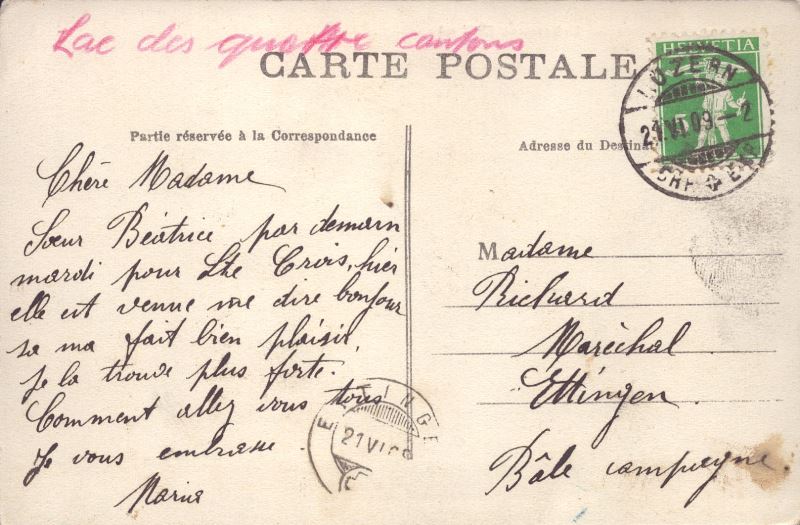 Lac des quattre cantons
CARTE POSTALE
HELVETIA
LUZERN
21.VI.09.-2
BRF EXP
Partie réservée à la Correspondance
Adresse du Destinat
Chère Madame
Sœur Béatrice par demain
mardi pour Ste Croix, hier
elle est venue me dire bonjour
sa ma fait bien plaisir.
Je la trouve plus forte.
Comment allez vous tous
Je vous embrasse
Maria
Madame
Richard
Maréchal
Ettingen
Bâle campagne.
ETTINGE
21 VI 09